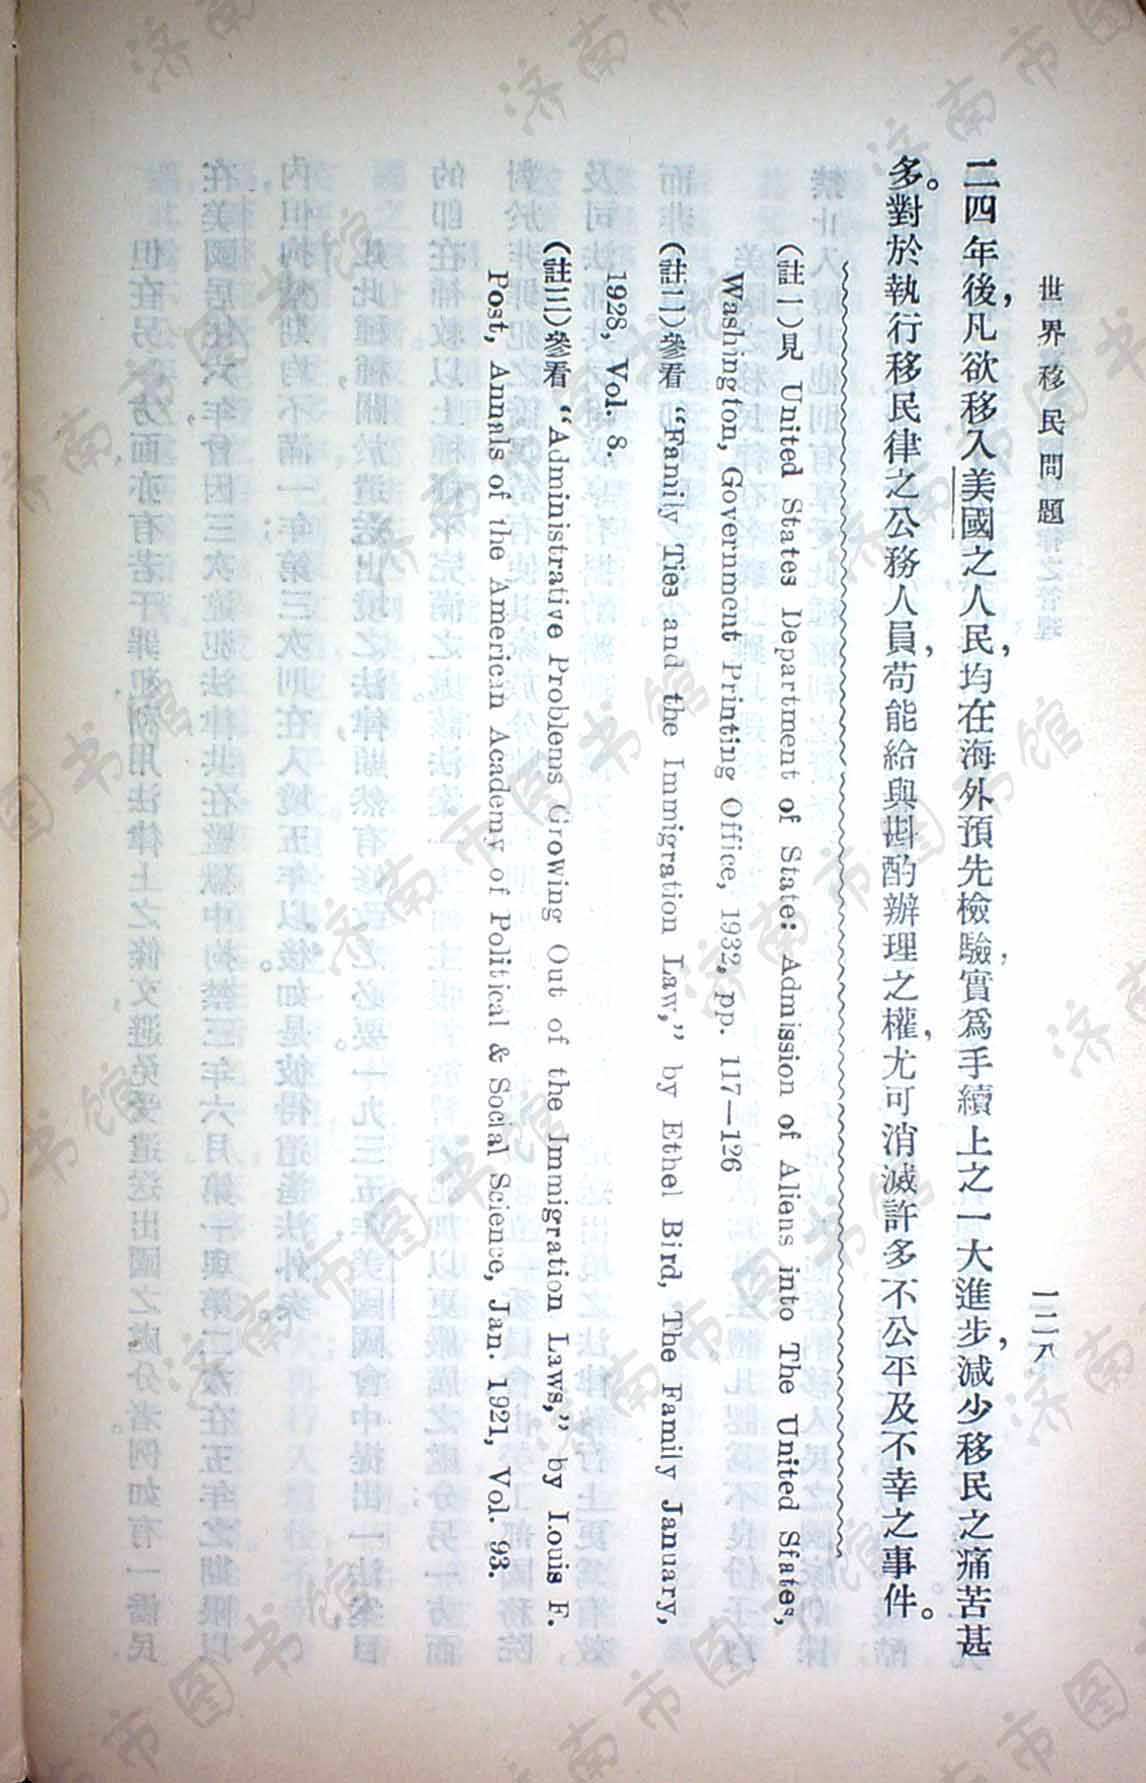 世界移民問題
一二八
二四年後，凡欲移入美國之人民，均在海外預先檢驗，實爲手續上之一大進步，減少移民之痛苦甚
多。對於執行移民律之公務人員，苟能給與斟酌辦理之權，尤可消滅許多不公平及不幸之事件。
(註一)見 United States Department of State: Admission of Aliens into The United States,
Washington, Government Printing Office, 1932, pp. 117—126
(註二)參看 “Family Ties and the Immigration Law,” by Ethel Bird, The Family January,
1928, Vol. 8.
(註三)參看 “Administrative Problems Growing Out of the Immigration Laws,” by Louis F.
Post, Annals of the American Academy of Political & Social Science, Jan. 1921, Vol. 93.
济南市图书馆